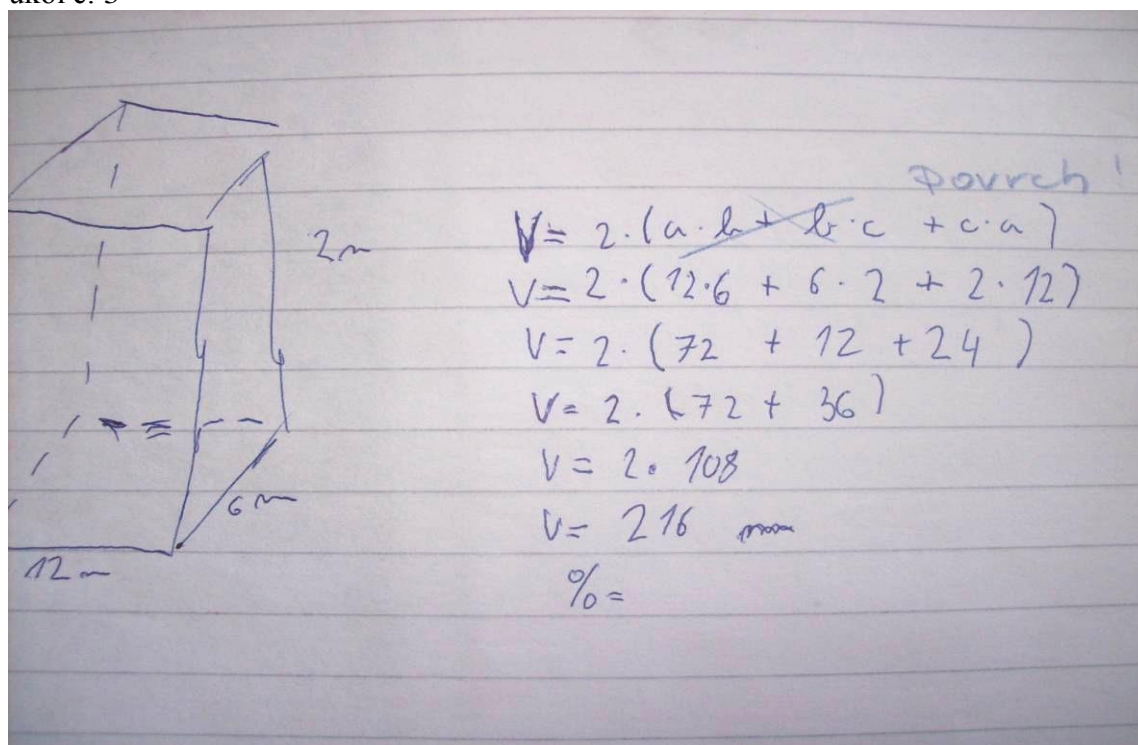 2m
6m
12m
Povrch!
V= 2.(a.b+ b.c + c.a)
V= 2.(12.6 + 6.2 + 2.12)
V= 2. (72 + 12 + 24 )
V= 2. (72 + 36)
V= 2. 108
V= 216
%=